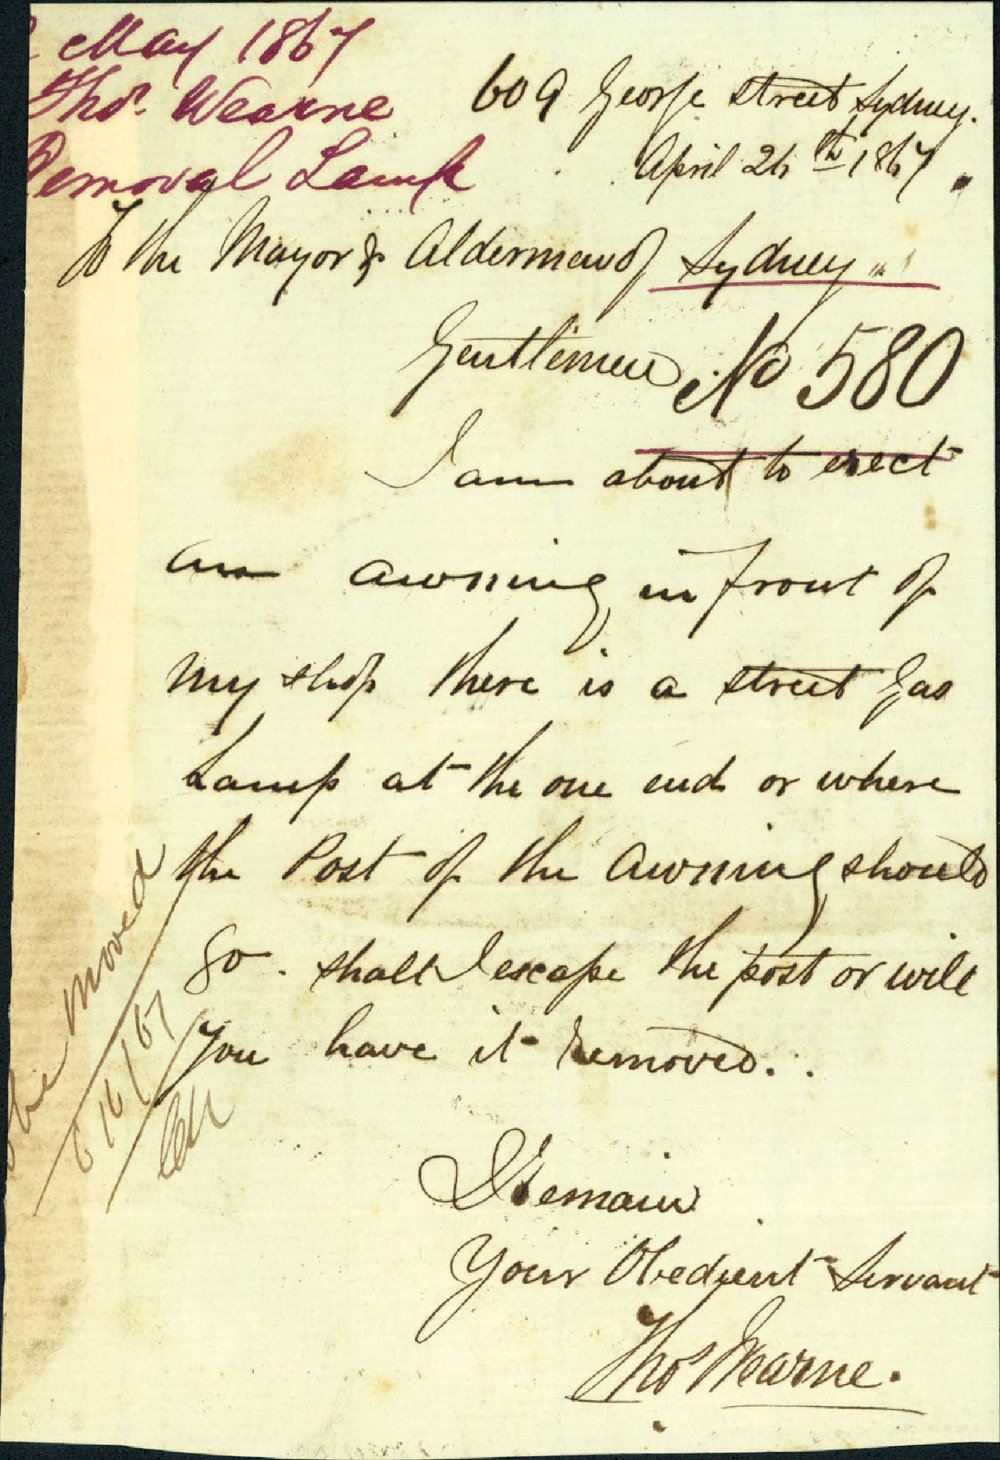 May 1867
Thos. Wearne
Removal Lamp
609 George street Sydney.
April 26th 1867
To the Mayor & Aldermen of Sydney
Gentlemen
No 580
I am about to erect
an awning in front of
my shop there is a street Gas
Lamp at the one end or where
the Post of the awning should
go. shall I escape the post or will
you have it removed..
I Remain
Your Obedient Servant
Thos Wearne.
be moved
/67